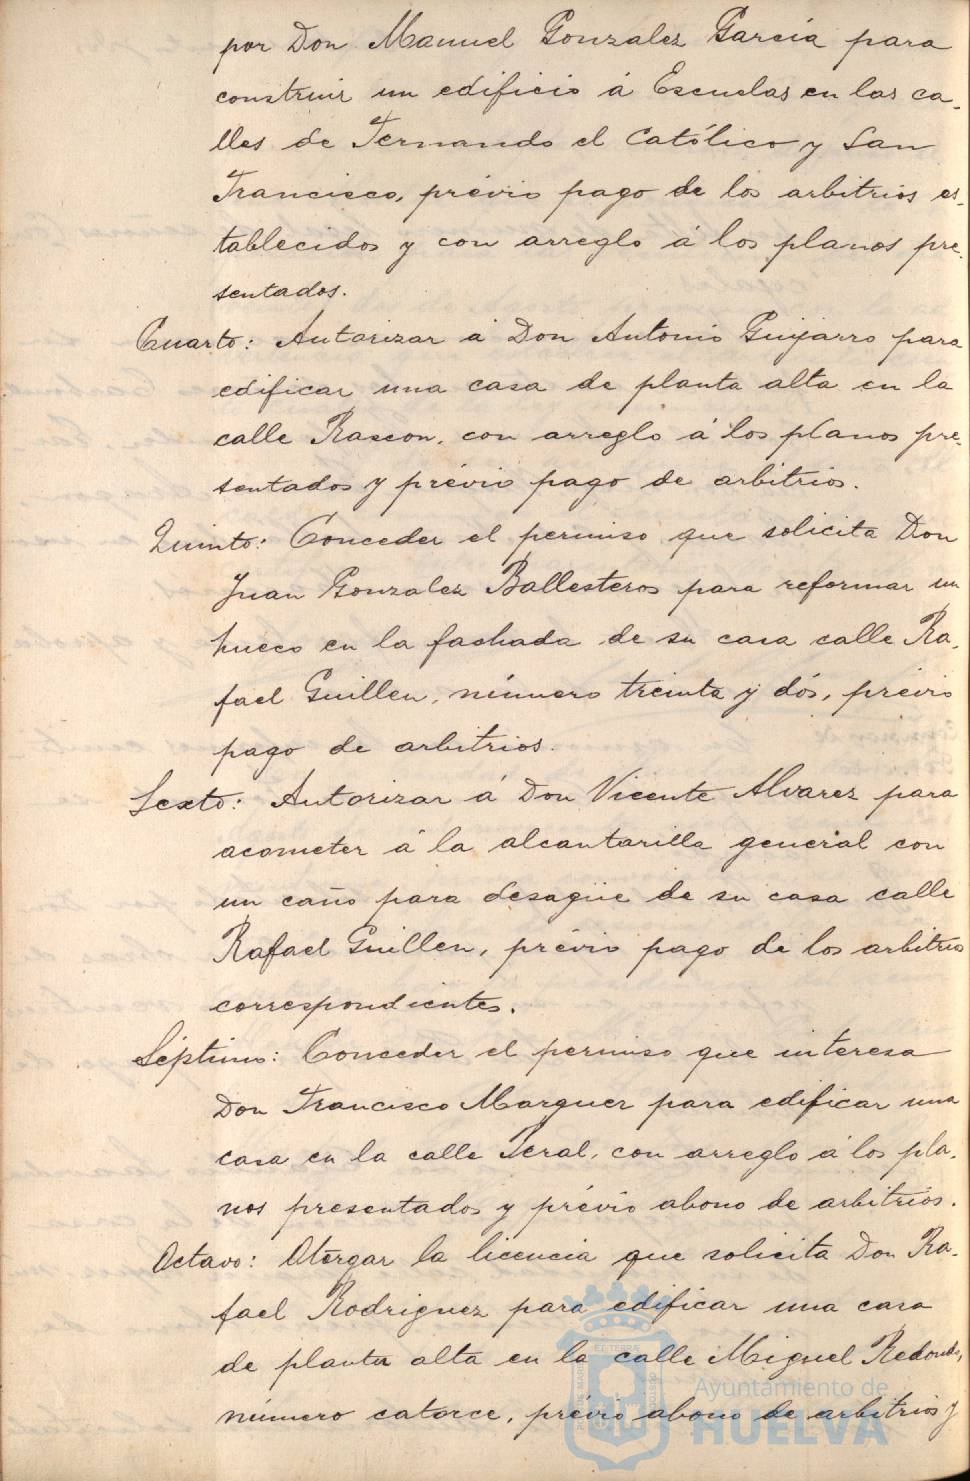 por Don Manuel Gonzalez García para
construir un edificio á Escuelas en las ca-
lles de Fernando el Católico y San
Francisco, prévio pago de los arbitrios es-
tablecidos y con arreglo á los planos pre-
sentados.
Cuarto: Autorizar á Don Antonio Guijarro para
edificar una casa de planta alta en la
calle Rascon, con arreglo á los planos pre-
sentados y prévio pago de arbitrios.
Quinto: Conceder el permiso que solicita Don
Juan Gonzalez Ballesteros para reformar un
hueco en la fachada de su casa calle Ra-
fael Guillen, número treinta y dós, prévio
pago de arbitrios.
Sexto: Autorizar á Don Vicente Alvarez para
acometer á la alcantarilla general con
un caño para desagüe de su casa calle
Rafael Guillen, prévio pago de los arbitrios
correspondientes.
Séptimo: Conceder el permiso que interesa
Don Francisco Marquez para edificar una
casa en la calle Peral, con arreglo á los pla-
nos presentados y prévio abono de arbitrios.
Octavo: Otorgar la licencia que solicita Don Ra-
fael Rodriguez para edificar una casa
de planta alta en la calle Miguel Redondo,
número catorce, prévio abono de arbitrios y
Ayuntamiento de
HUELVA